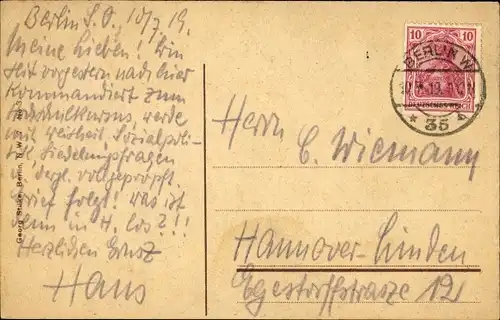 Berlin S.O., 10/7 19.
Meine Lieben! Bin
seit vorgestern nach hier
kommandiert zum
werde
mit Weisheit, Sozialpoli-
tik, Siedelungsfragen
u. dergl. vollgepropft.
Brief folgt! Was ist
denn in H. los?!!
Herzlichen Gruß
Hans
Georg Stilke, Berlin, N.W.7
10 10
BERLIN W
* 35
Herrn C. Wiemann
Hannover-Linden
Egestorffstrasze 12